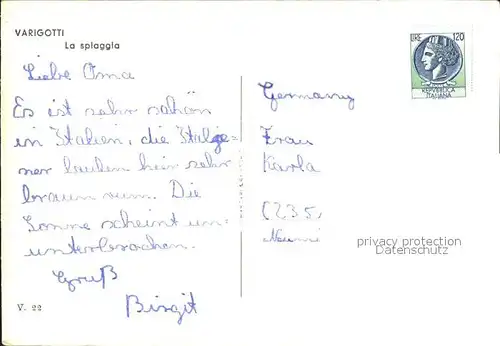 VARIGOTTI
La spiaggia
Liebe Oma
Es ist sehr schön
in Italien, die Italie-
ner laufen hier sehr
braun rum. Die
Sonne scheint un-
unterbrochen.
Gruß
Birgit
V. 22
LIRE 120
REPVBBLICA
ITALIANA
Germany
Frau
Karla
privacy protection
Datenschutz